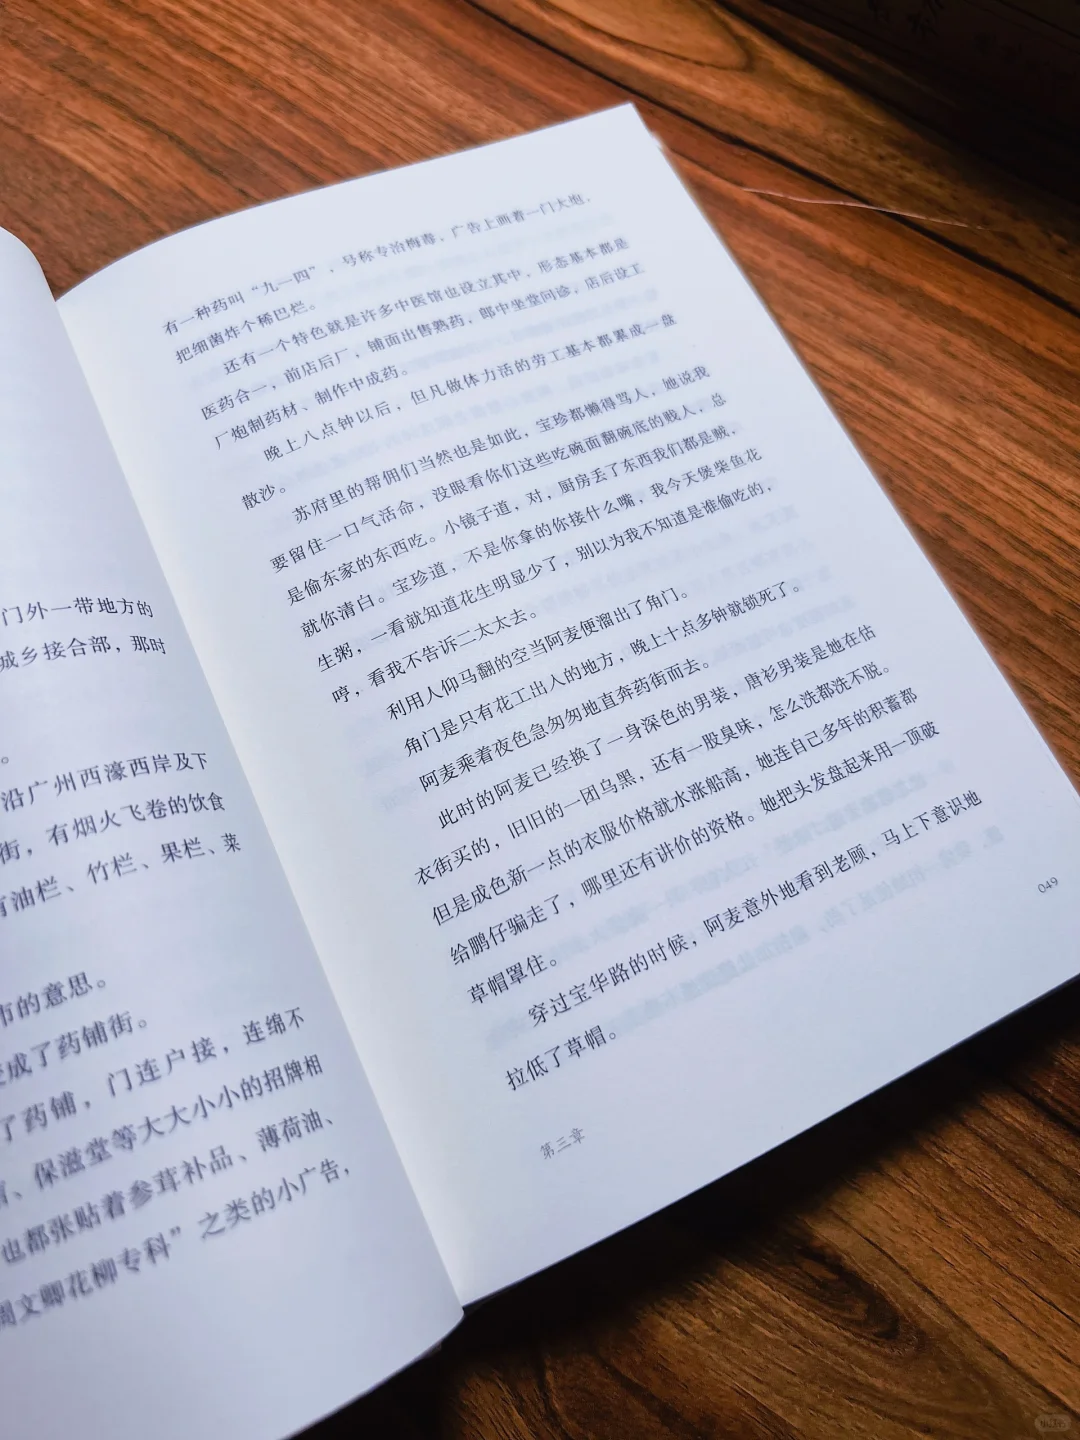 门外一带地方的
城乡接合部，那时
。
沿广州西濠西岸及下
街，有烟火飞卷的饮食
有油栏、竹栏、果栏、菜
市的意思。
变成了药铺街。
了药铺，门连户接，连绵不
、保滋堂等大大小小的招牌相
也都张贴着参茸补品、薄荷油、
周文卿花柳专科”之类的小广告，
有一种药叫“九一四”，号称专治梅毒，广告上画着一门大炮，
把细菌炸个稀巴烂。
还有一个特色就是许多中医馆也设立其中，形态基本都是
医药合一，前店后厂，铺面出售熟药，郎中坐堂问诊，店后设工
厂炮制药材、制作中成药。
晚上八点钟以后，但凡做体力活的劳工基本都累成一盘
散沙。
苏府里的帮佣们当然也是如此，宝珍都懒得骂人，她说我
要留住一口气活命，没眼看你们这些吃碗面翻碗底的贱人，总
是偷东家的东西吃。小镜子道，对，厨房丢了东西我们都是贼，
就你清白。宝珍道，不是你拿的你接什么嘴，我今天煲柴鱼花
生粥，一看就知道花生明显少了，别以为我不知道是谁偷吃的，
哼，看我不告诉二太太去。
利用人仰马翻的空当阿麦便溜出了角门。
角门是只有花工出入的地方，晚上十点多钟就锁死了。
阿麦乘着夜色急匆匆地直奔药街而去。
此时的阿麦已经换了一身深色的男装，唐衫男装是她在估
衣街买的，旧旧的一团乌黑，还有一股臭味，怎么洗都洗不脱。
但是成色新一点的衣服价格就水涨船高，她连自己多年的积蓄都
给鹏仔骗走了，哪里还有讲价的资格。她把头发盘起来用一顶破
草帽罩住。
穿过宝华路的时候，阿麦意外地看到老顾，马上下意识地
拉低了草帽。
第三章
049